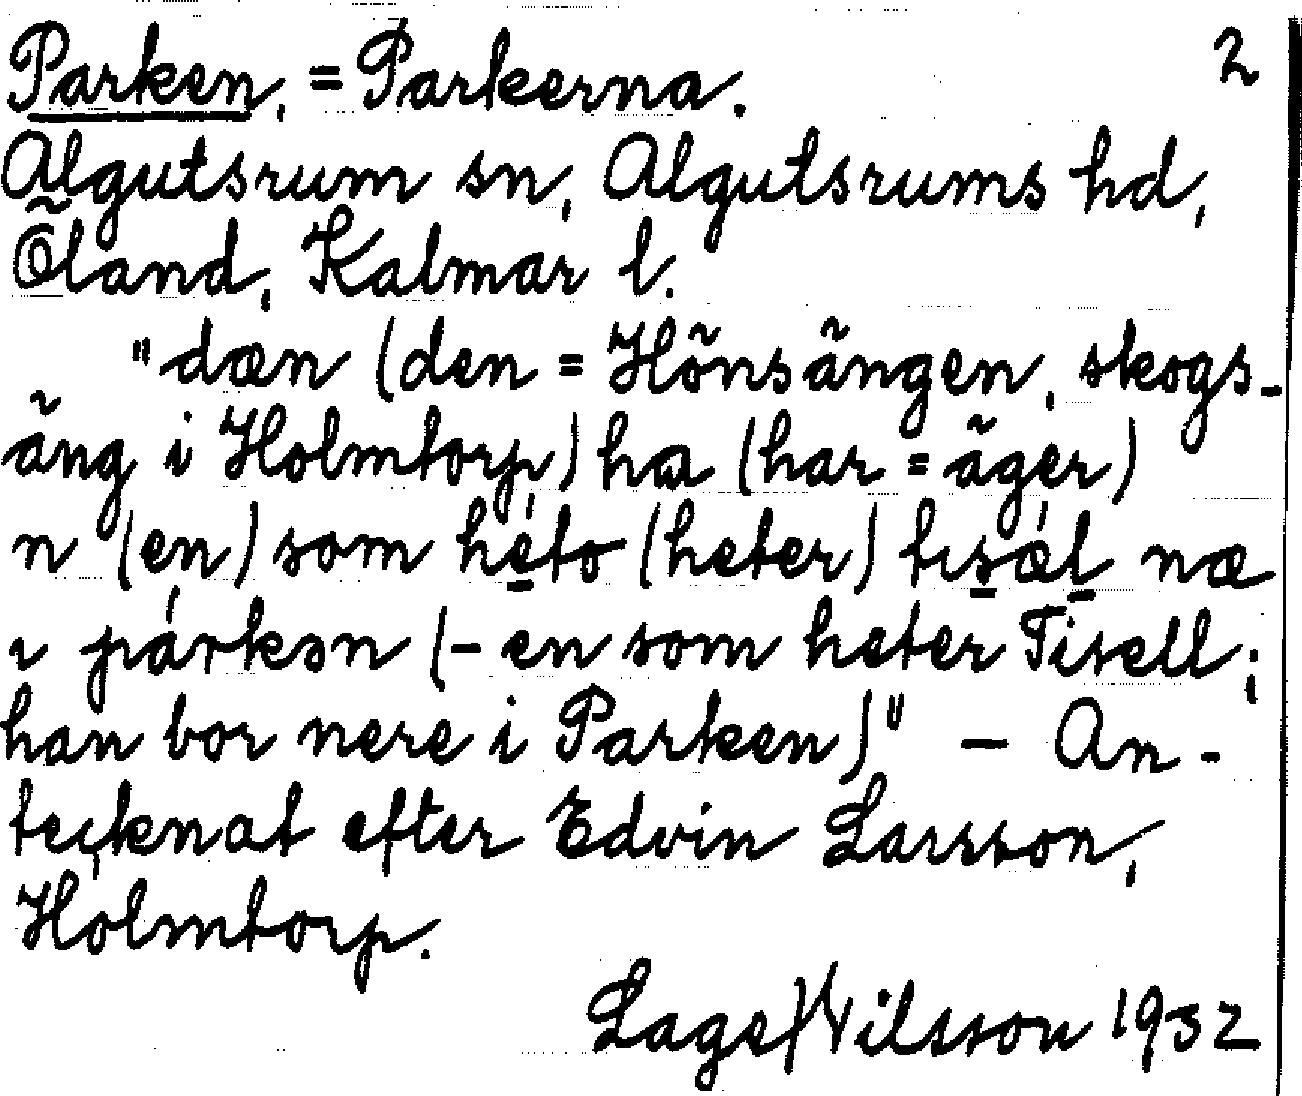 Parken, = Parkerna. 2
Algutsrum sn, Algutsrums hd,
Öland, Kalmar l.
"dæn (den = Hönsängen, skogs-
äng i Holmtorp) ha (har = äger)
n (en) som héto (heter) tısǽl næ
ı párkən (- en som heter Tisell;
han bor nere i Parken)" - An-
tecknat efter Edvin Larsson,
Holmtorp.
Lage Nilsson 1932